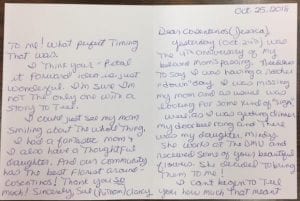 Oct. 25, 2018
Dear Cosentinos (Jessica),
Yesterday (Oct 24th) was
the 4th anniversary of my
beloved mom's passing. Needless
to say I was having a rather
"down" day. I was missing
my mom and as usual was
looking for some kind of "sign"
were as I was getting dinner
my doorbell rang and there
was my daughter, Mindy.
She works at the DMV and
received some of your beautiful
flowers. She decided to bring
them to me!
I can't begin to tell
you how much that meant
to me! What perfect timing
that was.
I think your "Petal
it Forward" idea is just
wonderful. I'm sure I'm
not the only one with a
story to tell.
I could just see my mom
smiling about the whole thing.
I had a fantastic mom &
I also have a thoughtful
daughter. And our community
has the best florist around -
Cosentinos! Thank you so
much! Sincerely, Sue